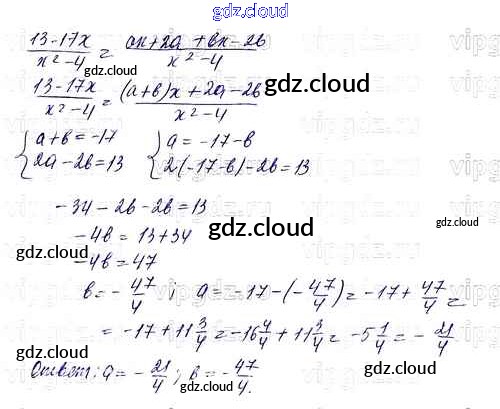 gdz.cloud
(13-17x)/(x²-4) = (ax+2a+bx-2b)/(x²-4)
gdz.cloud gdz.cloud
(13-17x)/(x²-4) = ((a+b)x+2a-2b)/(x²-4)
gdz.cloud
{ a+b=-17 { a=-17-b
{ 2a-2b=13 { 2(-17-b)-2b=13
-34-2b-2b=13
gdz.cloud gdz.cloud
-4b=13+34
gdz.cloud
-4b=47
b=-47/4; a=-17-(-47/4)=-17+47/4=
gdz.cloud
=-17+11 3/4=-16 4/4+11 3/4=-5 1/4=-21/4
gdz.cloud gdz.cloud
Ответ: a=-21/4; b=-47/4.
gdz.cloud